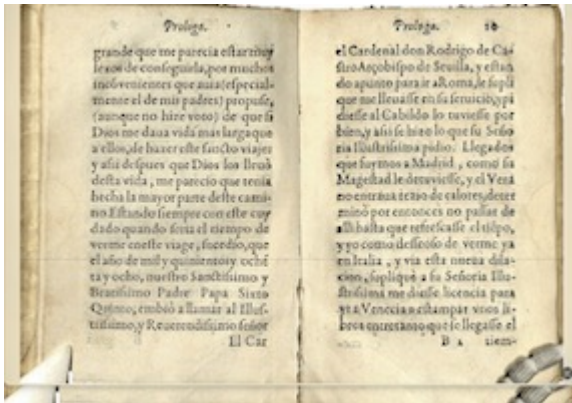 Prologo.
grande que me parecia estar muy
lexos de conseguirla, por muchos
inconvenientes que auia (especial-
mente el de mis padres) propuse,
(aunque no hize voto) de que si
Dios me daua vida mas larga que
a ellos, de hazer este sancto viaje:
y assi despues que Dios los lleuò
desta vida, me parecio que tenia
hecha la mayor parte deste cami-
no. Estando siempre con este cuy
dado quando seria el tiempo de
verme en este viage, sucedio, que
el año de mil y quinientos y oché
ta y ocho, nuestro Sanctissimo y
Beatissimo Padre Papa Sixto
Quinto, embiò a llamar al Illus-
trissimo, y Reuerendissimo señor
El Car
Prologo. 10
el Cardenal don Rodrigo de Ca-
stro Arçobispo de Seuilla, y estan
do a punto para ir a Roma, le supli
que me lleuasse en su seruicio, y pi
diesse al Cabildo lo tuuiesse por
bien, y assi se hizo lo que su Seño
ria Illustrissima pidio. Llegados
que fuymos a Madrid, como su
Magestad le detuuiesse, y el Vera
no entraua de calores, deter
minò por entonces no passar de
alli hasta que refrescasse el tiépo,
y yo como desseoso de verme ya
en Italia, y via esta nueua dila-
cion, supliquè a su Señoria Illu-
strissima me diesse licencia para
yr a Venecia a estampar vnos li-
bros entretanto que se llegasse el
B 2 tiem-